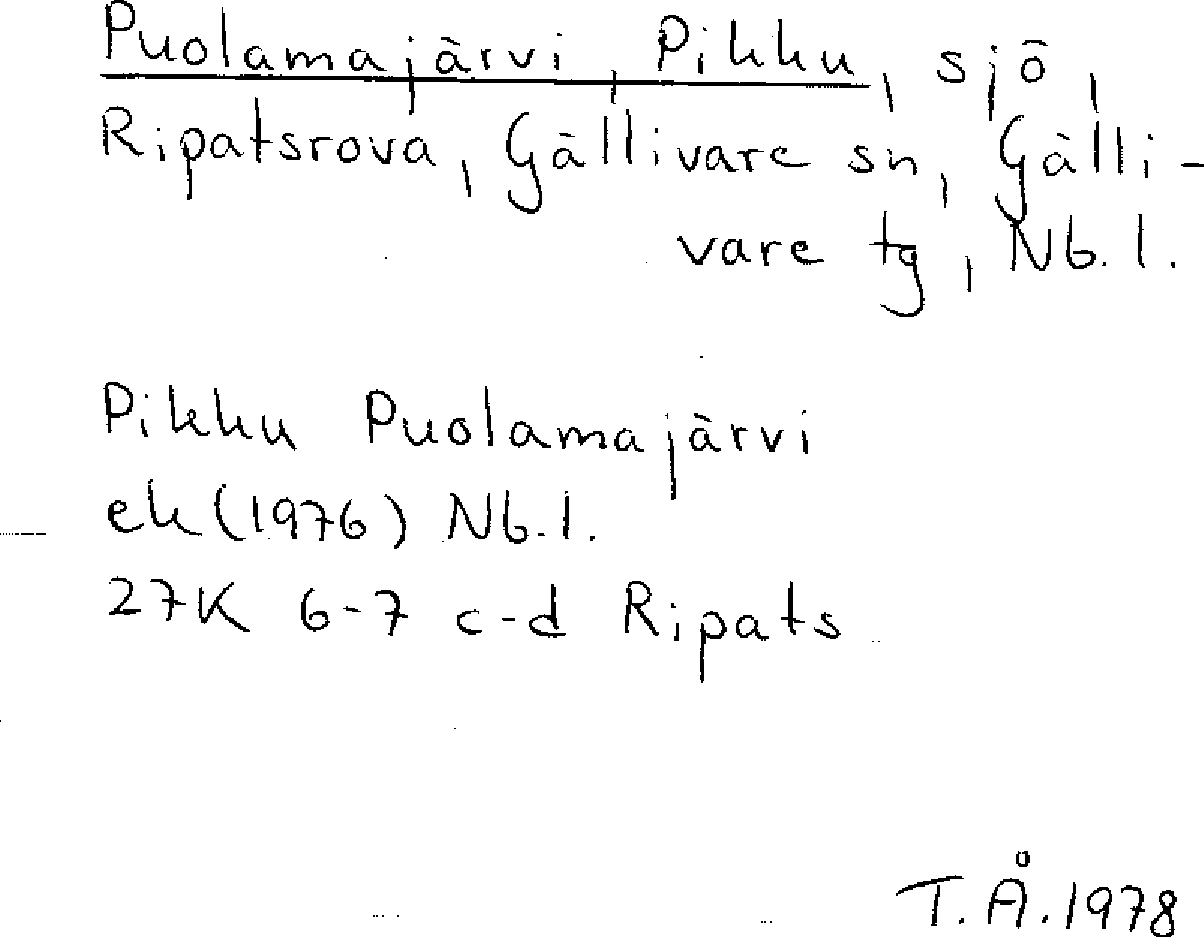 Puolamajärvi, Pikku, sjö,
Ripatsrova, Gällivare sn, Gälli-
vare tg, Nb. l.
Pikku Puolamajärvi
ek (1976) Nb. l.
27K 6-7 c-d Ripats
T. Å. 1978